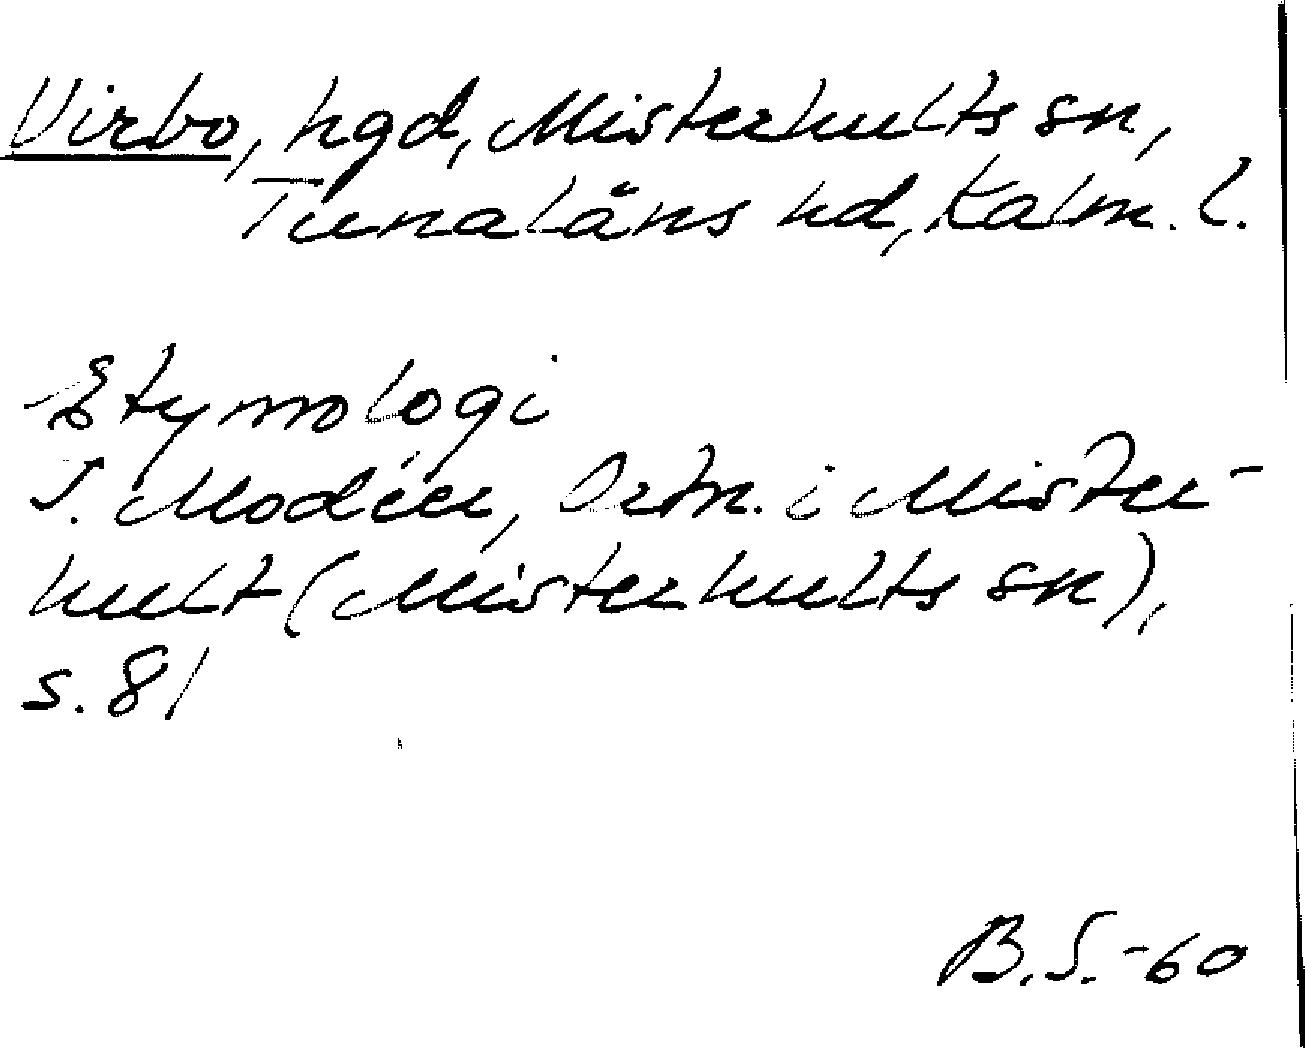 Virbo, hgd, Misterhults sn,
Tunaläns hd, Kalm. l.
Etymologi
I. Modéer, Ortn. i Mister-
hult (Misterhults sn),
s. 81
B.S. -60